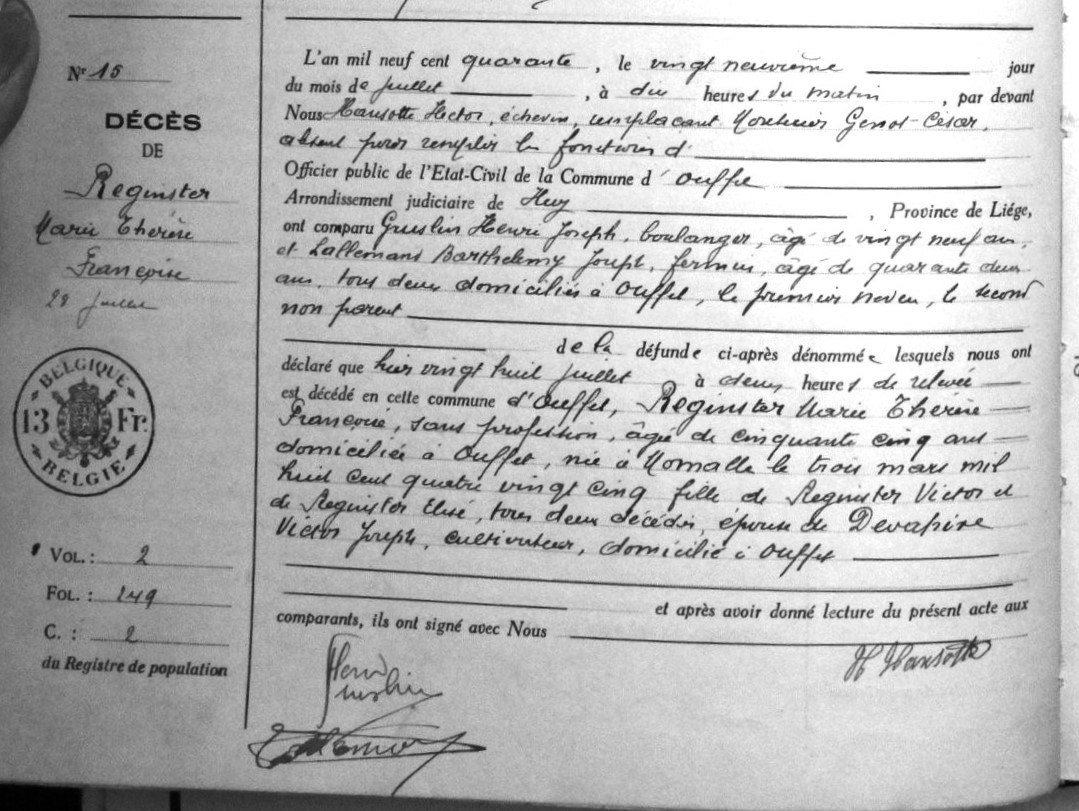 Nr 15
DÉCÈS
DE
Reginster
Marie Thérèse
Françoise
28 Juillet
BELGIQUE
13 Fr.
BELGIE
VOL.: 2
FOL.: 149
C. : 2
du Registre de population
L'an mil neuf cent quarante, le vingt neuvième jour
du mois de Juillet, à dix heures du matin, par devant
Nous Hansotte Hector, échevin, remplaçant Monsieur Genot César,
absent pour remplir les fonctions d'
Officier public de l'Etat-Civil de la Commune d'Ouffet
Arrondissement judiciaire de Huy, Province de Liége,
ont comparu Henri Joseph, boulanger, âgé de vingt neuf ans,
et Lallemand Barthélemy Joseph, fermier, âgé de quarante deux
ans, tous deux domiciliés à Ouffet, le premier neveu, le second
non parent
de la défunte ci-après dénommée lesquels nous ont
déclaré que hier vingt huit juillet à deux heures de relevée
est décédé en cette commune d'Ouffet, Reginster Marie Thérèse
Françoise, sans profession, âgée de cinquante cinq ans
domiciliée à Ouffet, née à Momalle le trois mars mil
huit cent quatre vingt cinq fille de Reginster Victor et
de Reginster Elise, tous deux décédés, épouse de
Victor Joseph, cultivateur, domicilié à Ouffet
et après avoir donné lecture du présent acte aux
comparants, ils ont signé avec Nous
H Hansotte
Henri